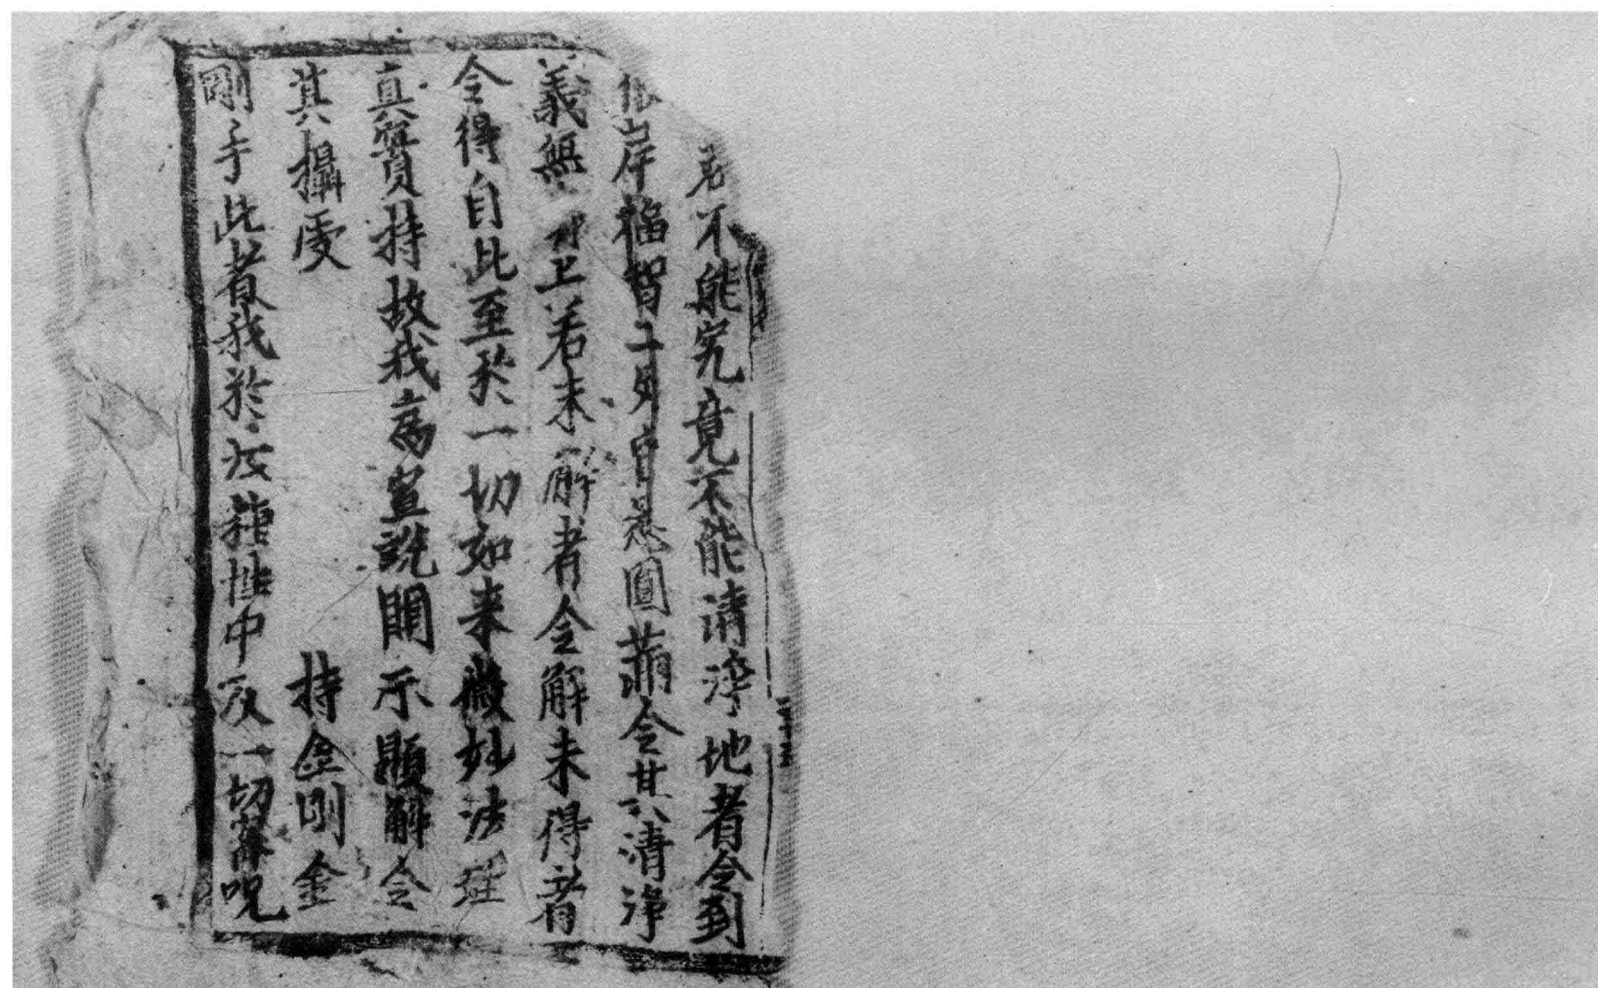 若不能究竟不能清淨地者令到
彼岸福智二夘皆悉圓滿令其清淨
義無上若未解者令解未得者
令得自此至於一切如来微妙法
真實持故我為宣說開示顯解令
其攝受 持金剛金
剛手此者我於汝種性中及一切密呪